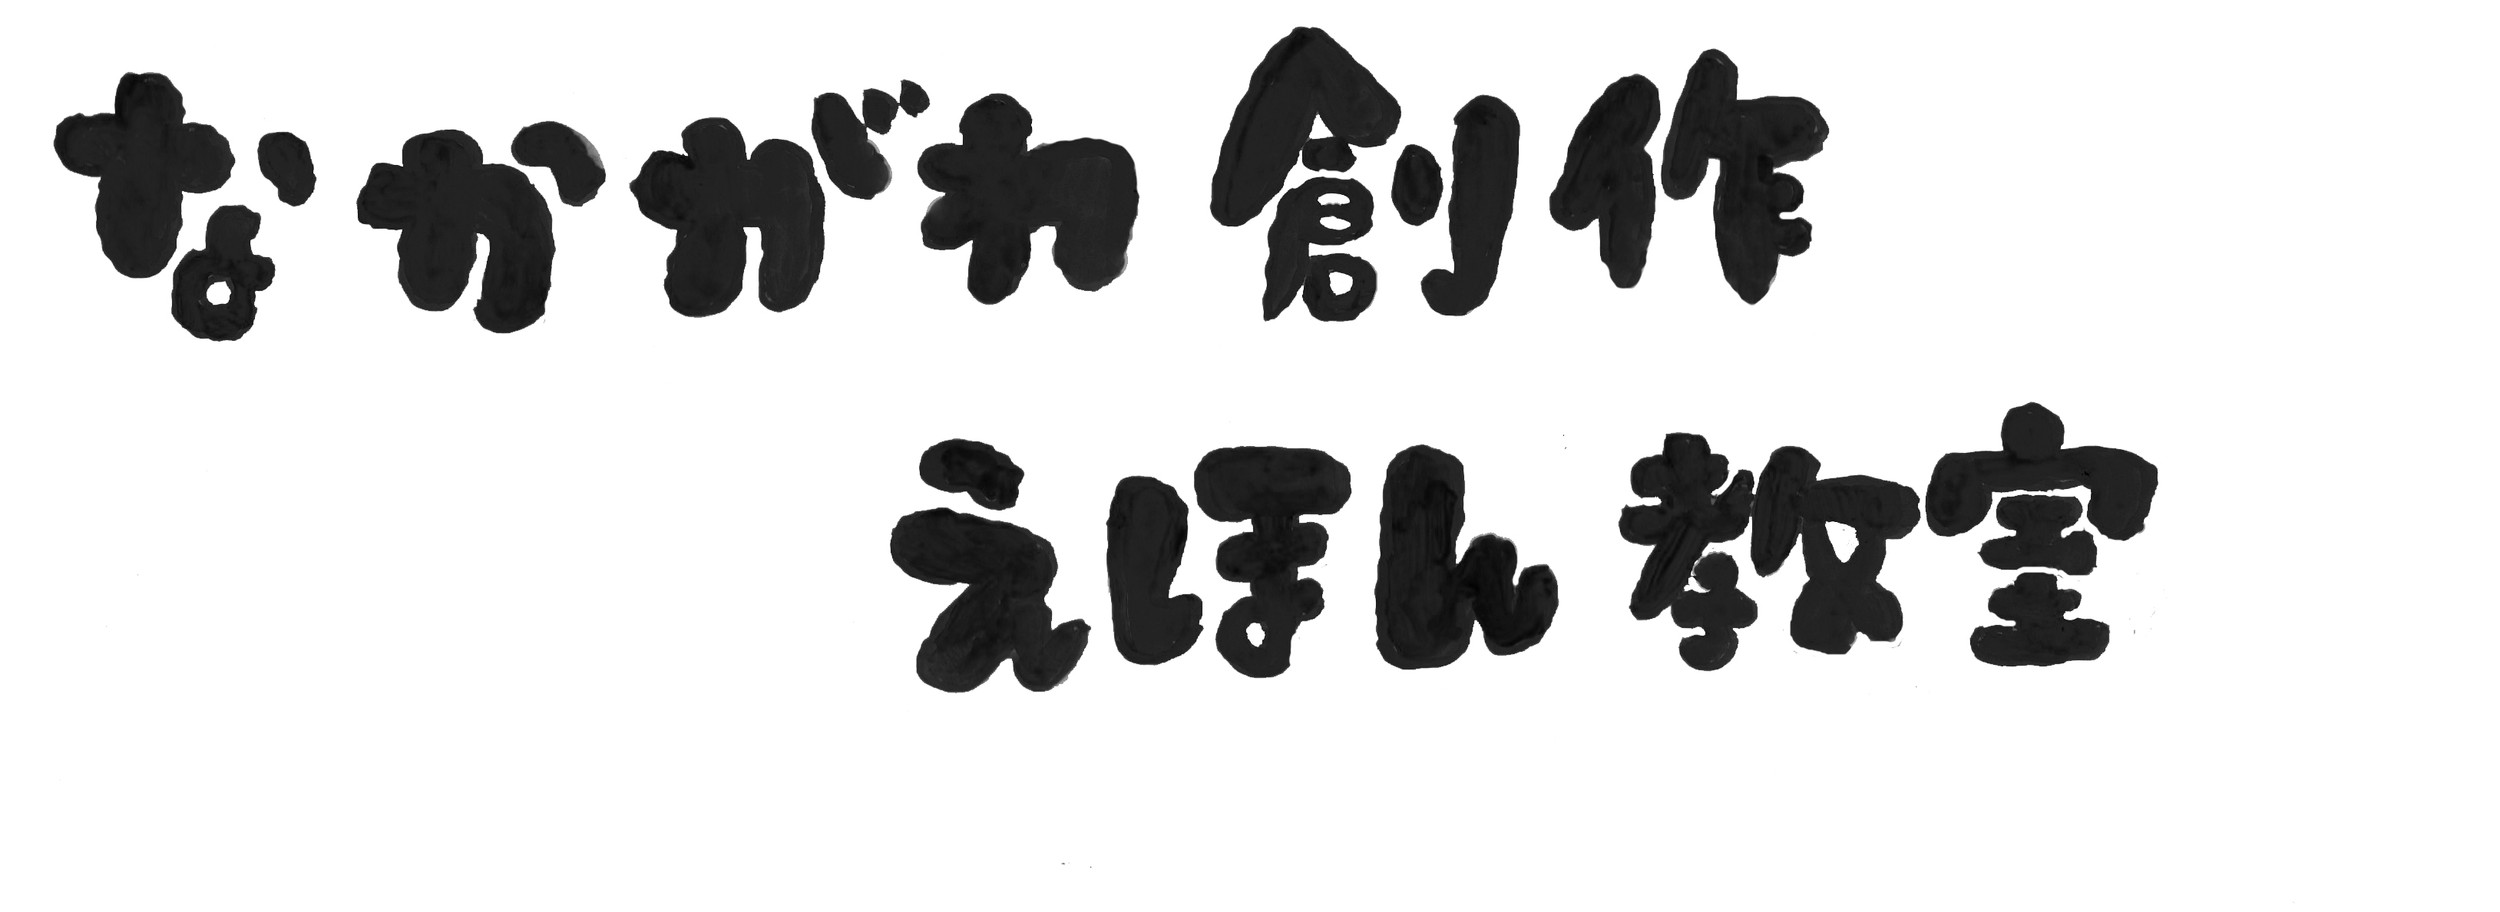 なかがわ創作
えほん教室